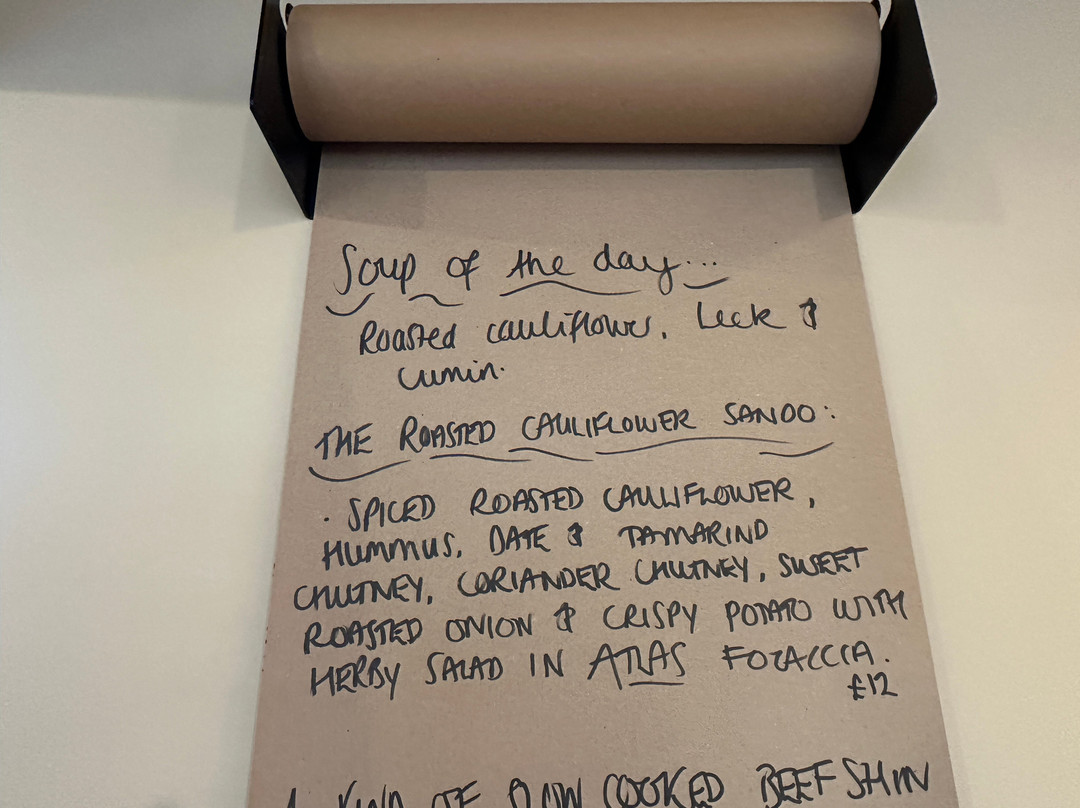 Soup of the day...
Roasted cauliflower, Leek &
cumin.
THE ROASTED CAULIFLOWER SANDO:
· SPICED ROASTED CAULIFLOWER,
HUMMUS, DATE & TAMARIND
CHUTNEY, CORIANDER CHUTNEY, SWEET
ROASTED ONION & CRISPY POTATO WITH
HERBY SALAD IN ATLAS FOCACCIA.
£12
KIND OF COOKED BEEF SHIN